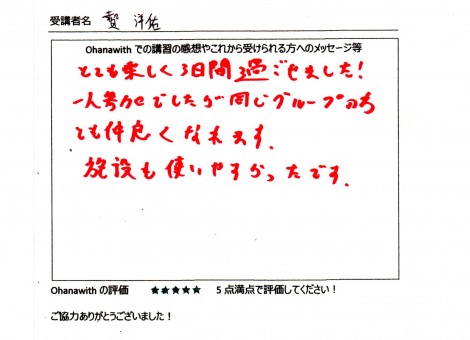 受講者名 贄 洋佑
Ohanawith での講習の感想やこれから受けられる方へのメッセージ等
とても楽しく3日間過ごせました!
一人参加でしたが同じグループのち
とも仲良くなれます.
施設も使いやすかったです.
Ohanawith の評価 ★★★★★ 5 点満点で評価してください!
ご協力ありがとうございました!